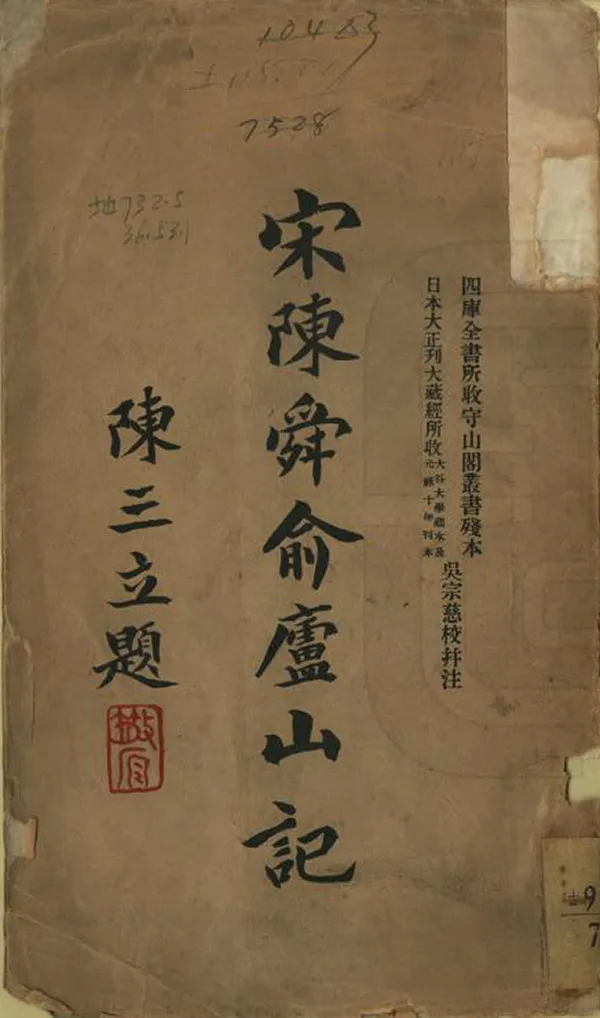 10423
7528
地732.5
36.531
四庫全書所收守山閣叢書殘本
日本大正刋大藏經所收大谷大學藏本及元祿十年刊本
吳宗慈校幷注
宋陳舜俞廬山記
陳三立題
散原
9
7